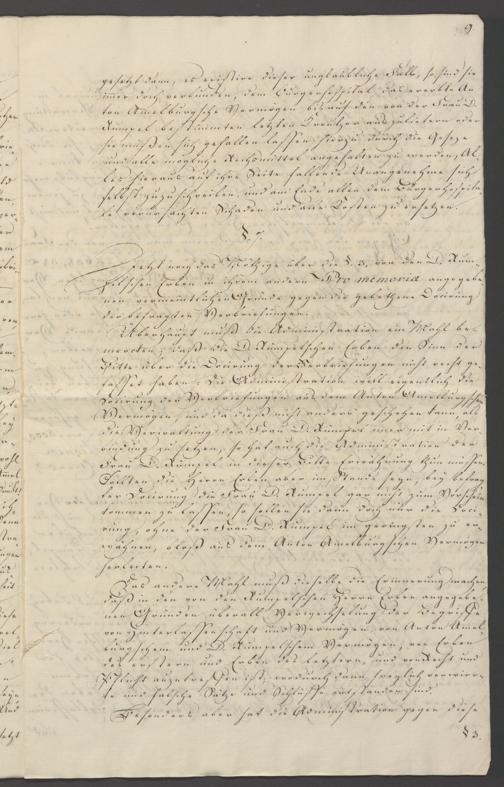 9
gesetzt dann, es existire dieser unglaubliche Fall, so sind sie
immer doch verbunden, dem Bürgerhospital das ererbte An-
ton Amelburgsche Vermögen bis auf den von der Frau D.
Rumpel bestimmten letzten Kreutzer auszuliefern oder
sie müssen sich gefallen lassen, hierzu durch die Geseze
und alle mögliche Rechtsmittel angehalten zu werden, Al-
les hieraus auf ihre Seite fallende Unangenehme sich
selbst zuzuschreiben, und am Ende allen dem Bürgerhospita-
le verursachten Schaden und alle Kosten zu ersetzen.
§ 7.
Jetzt noch das Nöthige über die § 3. von den D. Rum-
pelschen Erben in ihrem andern Pro memoria angegebe-
nen vermeintlichen Gründe gegen die gebethene Docirung
der besagten Verbriefungen.
Überhaupt muß die Administration ein Mahl be-
merken, daß die D. Rumpelschen Erben den Sinn der
Bitte über die Docirung der Verbriefungen nicht recht ge-
fasset haben. Die Administration will eigentlich die
Docirung der Verbriefungen aus dem Anton Amelburgischen
Vermögen und da dieß nicht anders geschehen kann, als
die Verwaltung der Frau D. Rumpel immer mit in Ver-
bindung zu setzen, so hat auch die Administration der
Frau D. Rumpel in dieser Bitte Erwähnung thun müssen.
Sollten die Herrn Erben aber im Stande seyn, bey betrag-
ter Docirung die Frau D. Rumpel gar nicht zum Vorschein
kommen zu lassen, so sollen sie dann doch nur die Doci-
rung, ohne der Frau D. Rumpel im geringsten zu er-
wähnen, bloß aus dem Anton Amelburgschen Vermögen
herleiten.
Das andere Mahl muß dieselbe die Erinnerung machen,
daß in den von den Rumpelschen Herrn Erben angegebe-
nen Gründen überall Verwechselung der Begriffe
von Hinterlassenschaft und Vermögen, von Anton Amel-
burgschem und D. Rumpelschem Vermögen, von Erben
des erstern und Erben des letztern, und von Recht und
Pflicht anzutreffen ist, wodurch dann freylich verwirr-
te und falsche Sätze und Schlüsse entstanden sind.
Besonders aber hat die Administration gegen diese
§ 3.